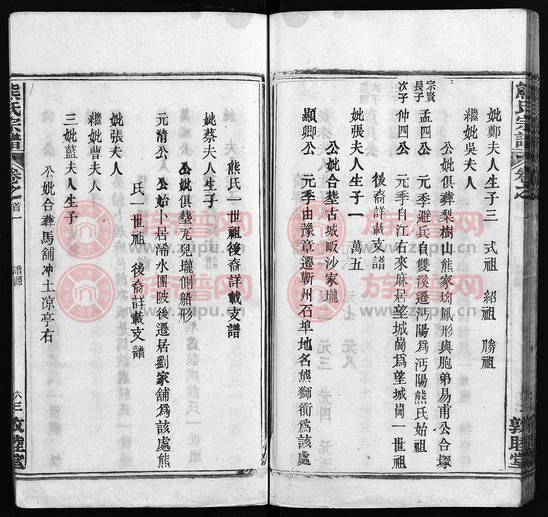 熊氏宗譜
卷之
妣鄭夫人生子三 式祖 紹祖 勝祖
繼妣吳夫人
公妣俱葬梨樹山熊家塆鳳形與胞弟易甫公合塚
宗賢長子 孟四公 元季避兵自雙溪遷沔陽為沔陽熊氏始祖
次子 仲四公 元季自江右來麻居望城崗為望城崗一世祖
後裔詳載支譜
妣張夫人生子一 萬五
公妣合塟古城畈沙家壠
顯卿公 元季由豫章遷蘄州石埠地名熊獅衝為該處
敦睦堂
熊氏一世祖後裔詳載支譜
妣蔡夫人生子
公妣俱塟兎兒壠側觧形
元清公 公始卜居淪水團陂後遷居劉家舖為該處熊
氏一世祖 後裔詳載支譜
妣張夫人
繼妣曹夫人
三妣藍夫人生子
公妣合葬馬舖冲土涼亭右
熊氏宗譜
卷之首一
譜源
六三
敦睦堂
族谱网
www.zupu.cn